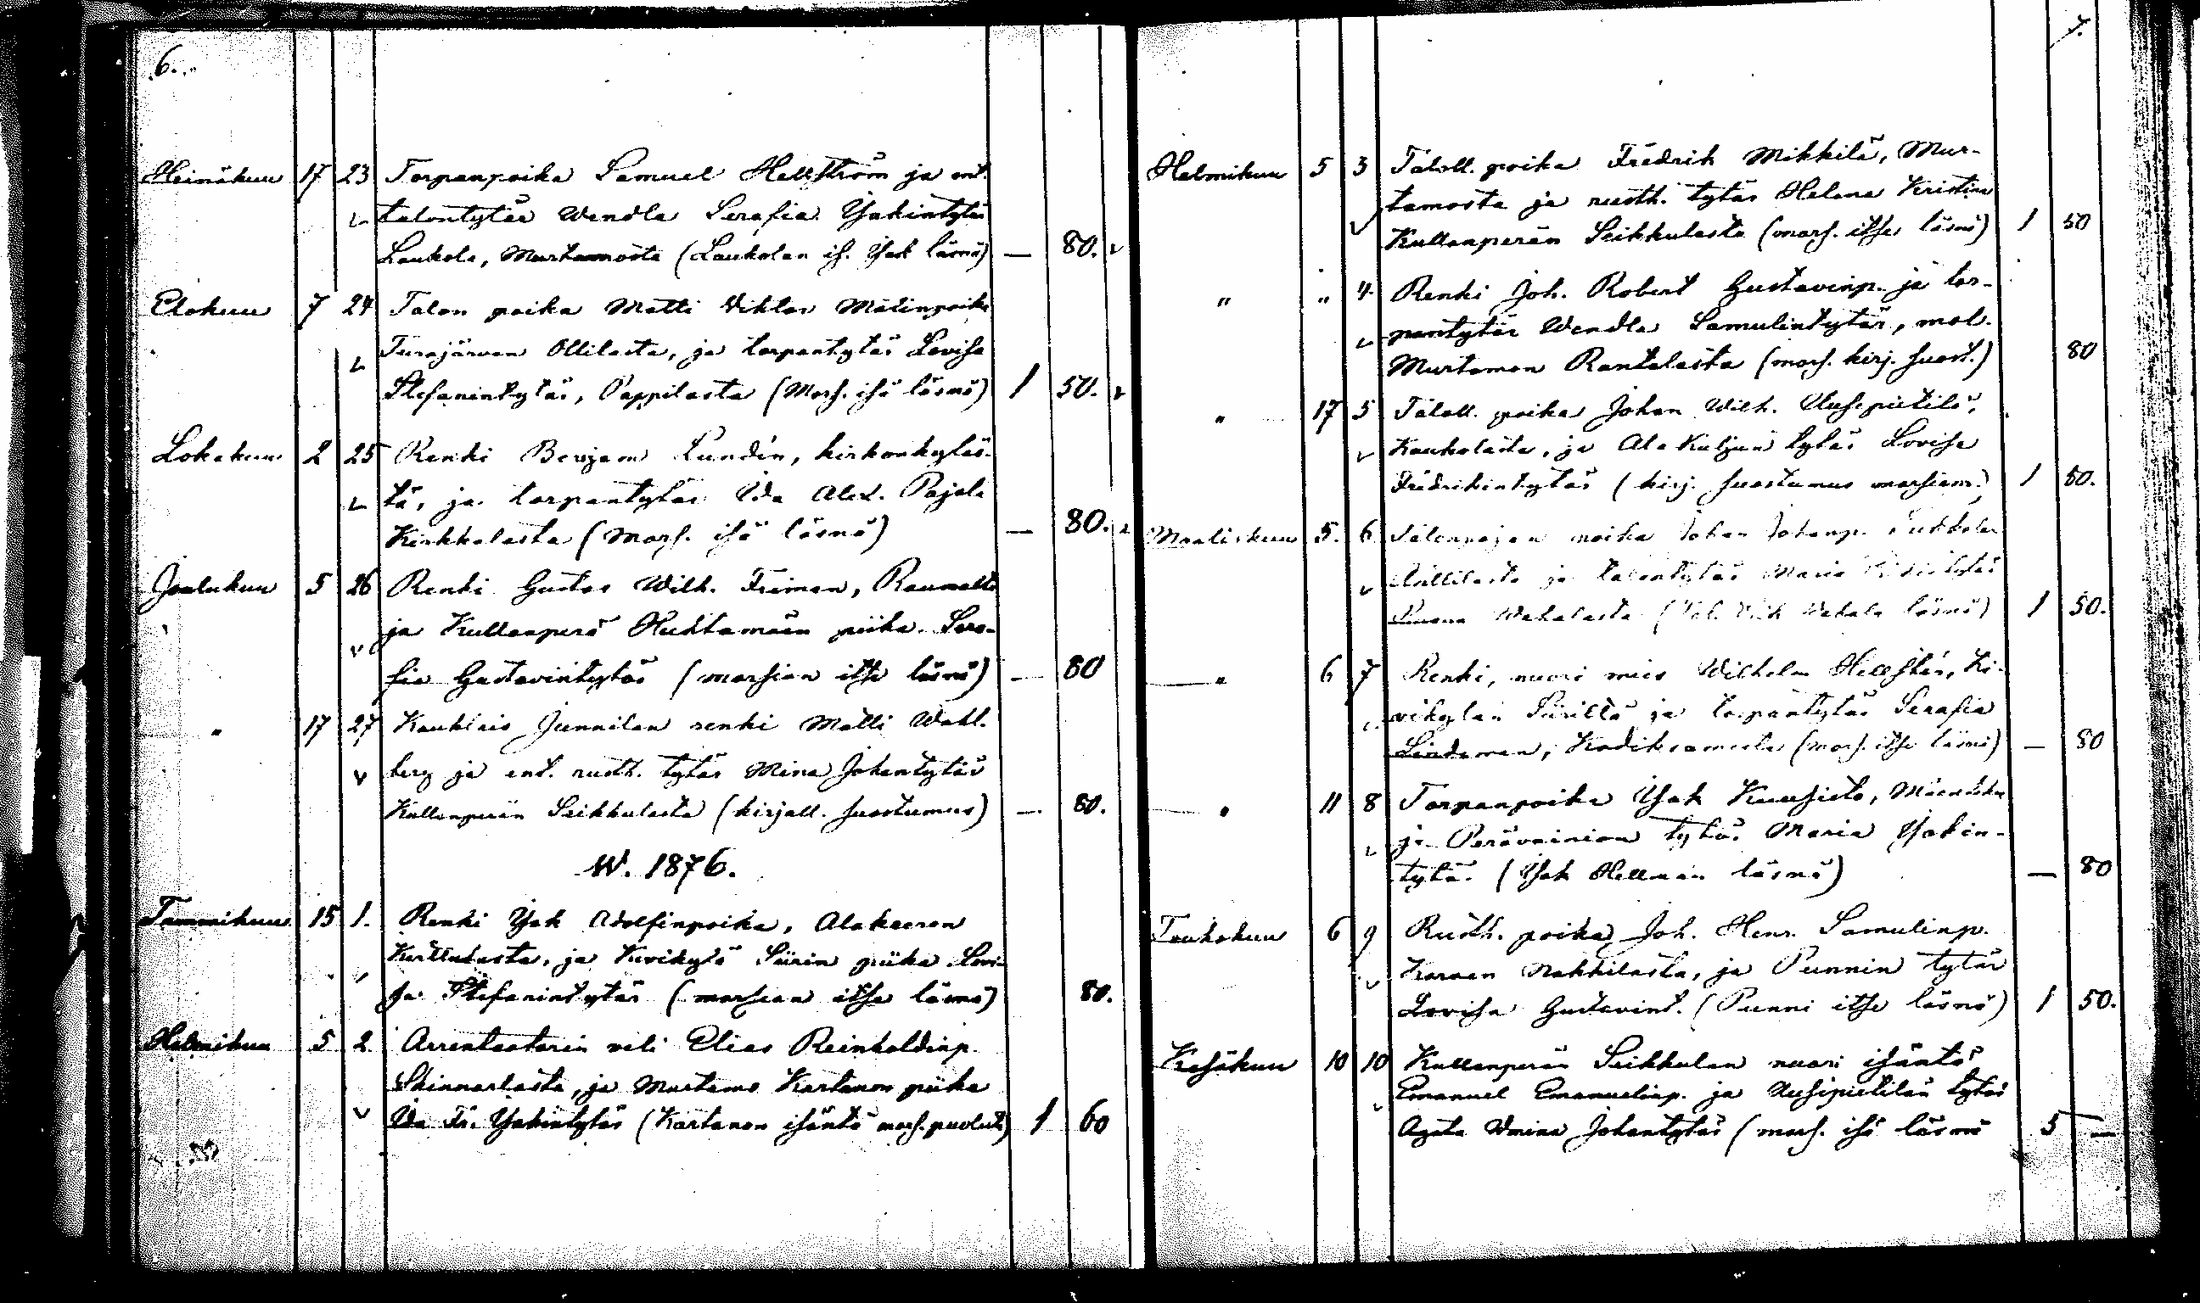 6.
Heinäkuu 17 23 Torpanpoika Samuel Hellström ja ent.
talontytär Wendla Serafia Isakintytär
Laukola, Murtamosta (Laukolan is. Isak läsnä) — 80.
Elokuu 7 24 Talon poika Matti Viktor Matinpoika
Turajärven Ollilasta, ja torpantytär Lovisa
Stefanintytär, Pappilasta (Mors. isä läsnä) 1 50.
Lokakuu 2 25 Renki Benjam. Lundén, kirkonkyläs-
tä, ja torpantytär Ida Alex. Pajala
Kirkkalasta (Mors. isä läsnä) — 80.
Joulukuu 5 26 Renki Gustaf Wilh. Freiman, Raumalta
ja Kullanperä Huhtamäen piika Sera-
fia Gustavintytär (morsian itse läsnä) — 80
" 17 27 Kauklais Junnilan renki Matti Wahl-
berg ja ent. rusth. tytär Mina Johantytär
Kullanperän Seikkulasta (kirjall. suostumus) — 80.
W. 1876.
Tammikuu 15 1. Renki Isak Adolfinpoika, Alakeeron
ja Kivikylä Siirin piika Lovi-
sa Stefanintytär (morsian itse läsnä) 80.
Helmikuu 5 2 Arrentaatorin veli Elias Reinholdinp.
Skinnarlasta, ja Murtamo Kartanon piika
Ida Fr. Isakintytär (Kartanon isäntä mors. puolust.) 1 60
7.
Helmikuu 5 3 Taloll. poika Fredrik Mikkilä, Mur-
tamosta ja rusth. tytär Helena Kristina
Kullanperän Seikkulasta (mors. itse läsnä) 1 50
" " 4. Renki Joh. Robert Gustavinp. ja tor-
pantytär Wendla Samulintytär, mol.
Murtamon Rantalasta (mors. kirj. suost.) 80
" 17 5 Taloll. poika Johan Wilh. Uusipietilä,
Kaukolasta, ja Ala Kuljun tytär Lovisa
Fredrikintytär (kirj. suostumus morsiam.) 1 50.
Maaliskuu 5. 6 poika Johan Johanp.
ja talontytär Maria
Wahalasta (Wahala läsnä) 1 50.
" 6 7 Renki, nuori mies Wilhelm Hellstén, Ki-
vikylän Siiriltä ja torpantytär Serafia
Lindeman, Kodiksamista (mors. itse läsnä) — 80
" 11 8 Torpanpoika Isak Kuusisto,
ja Perävainion tytär Maria Isakin-
tytär (Isak Hellman läsnä) — 80
Toukokuu 6 9 Rusth. poika Joh. Henr. Samulinp.
ja Punnin tytär
Lovisa Gustavint. (Punni itse läsnä) 1 50.
Kesäkuu 10 10 Kullanperän Seikkulan nuori isäntä
Emanuel Emanuelinp. ja Uusipietilän tytär
Agata Wmina Johantytär (mors. isä läsnä 5 —